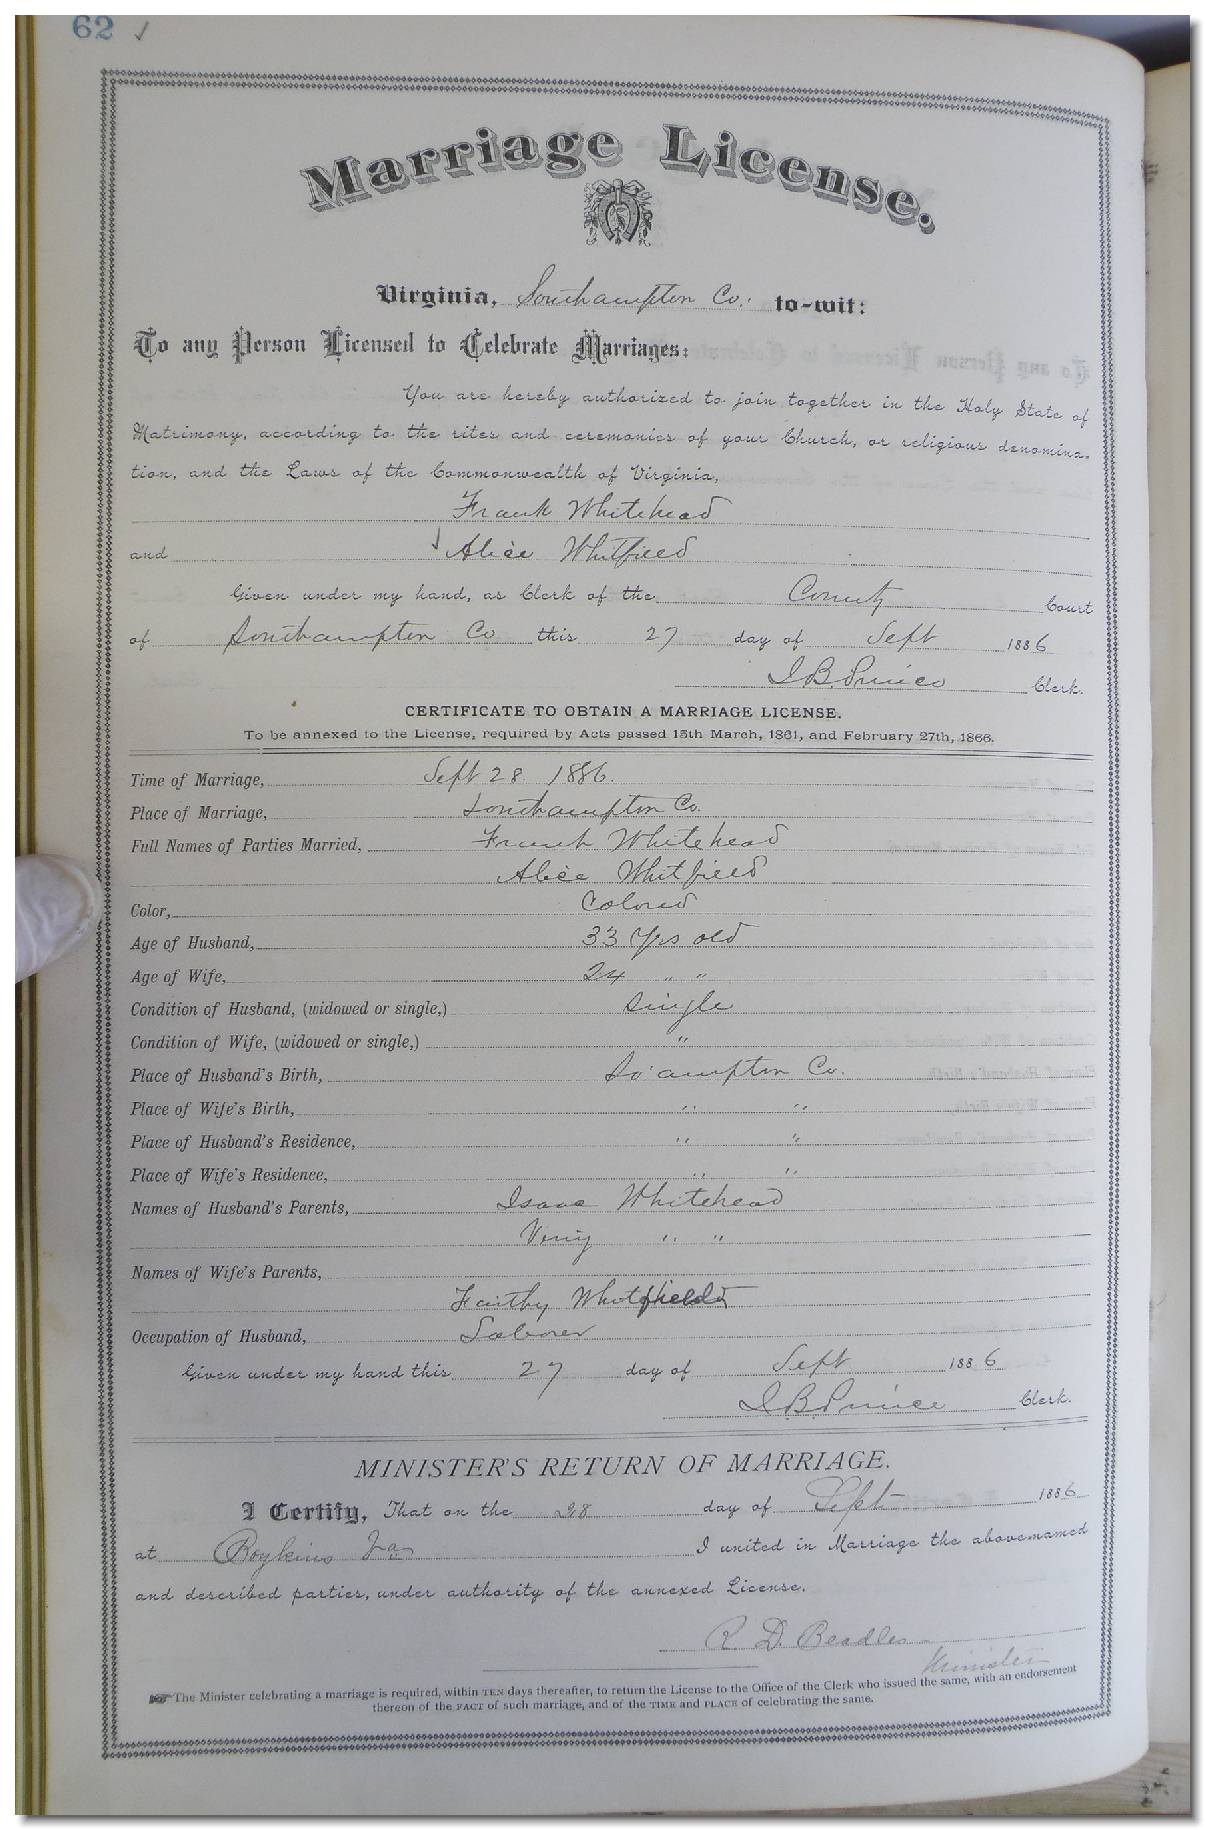 62 ✓
Marriage License.
Virginia, Southampton Co. to-wit:
To any Person Licensed to Celebrate Marriages:
You are hereby authorized to join together in the Holy State of
Matrimony, according to the rites and ceremonies of your Church, or religious denomina-
tion, and the Laws of the Commonwealth of Virginia,
Frank Whitehead
and Alice Whitfield
Given under my hand, as Clerk of the County Court
of Southampton Co this 27 day of Sept 1886
Clerk.
CERTIFICATE TO OBTAIN A MARRIAGE LICENSE.
To be annexed to the License, required by Acts passed 15th March, 1861, and February 27th, 1866.
Time of Marriage, Sept 28 1886.
Place of Marriage, Southampton Co.
Full Names of Parties Married, Frank Whitehead
Alice Whitfield
Color, Colored
Age of Husband, 33 Yrs old
Age of Wife, 24 " "
Condition of Husband, (widowed or single,) Single
Condition of Wife, (widowed or single,) "
Place of Husband's Birth, So'ampton Co.
Place of Wife's Birth, " "
Place of Husband's Residence, " "
Place of Wife's Residence, " "
Names of Husband's Parents, Isaac Whitehead
" "
Names of Wife's Parents,
Faithy Whitfield
Occupation of Husband, Laborer
Given under my hand this 27 day of Sept 1886
Prince Clerk.
MINISTER'S RETURN OF MARRIAGE.
I Certify, That on the 28 day of Sept 1886
at Boykins Va I united in Marriage the abovenamed
and described parties, under authority of the annexed License.
R. D. Beadles
Minister
The Minister celebrating a marriage is required, within TEN days thereafter, to return the License to the Office of the Clerk who issued the same, with an endorsement
thereon of the FACT of such marriage, and of the TIME and PLACE of celebrating the same.